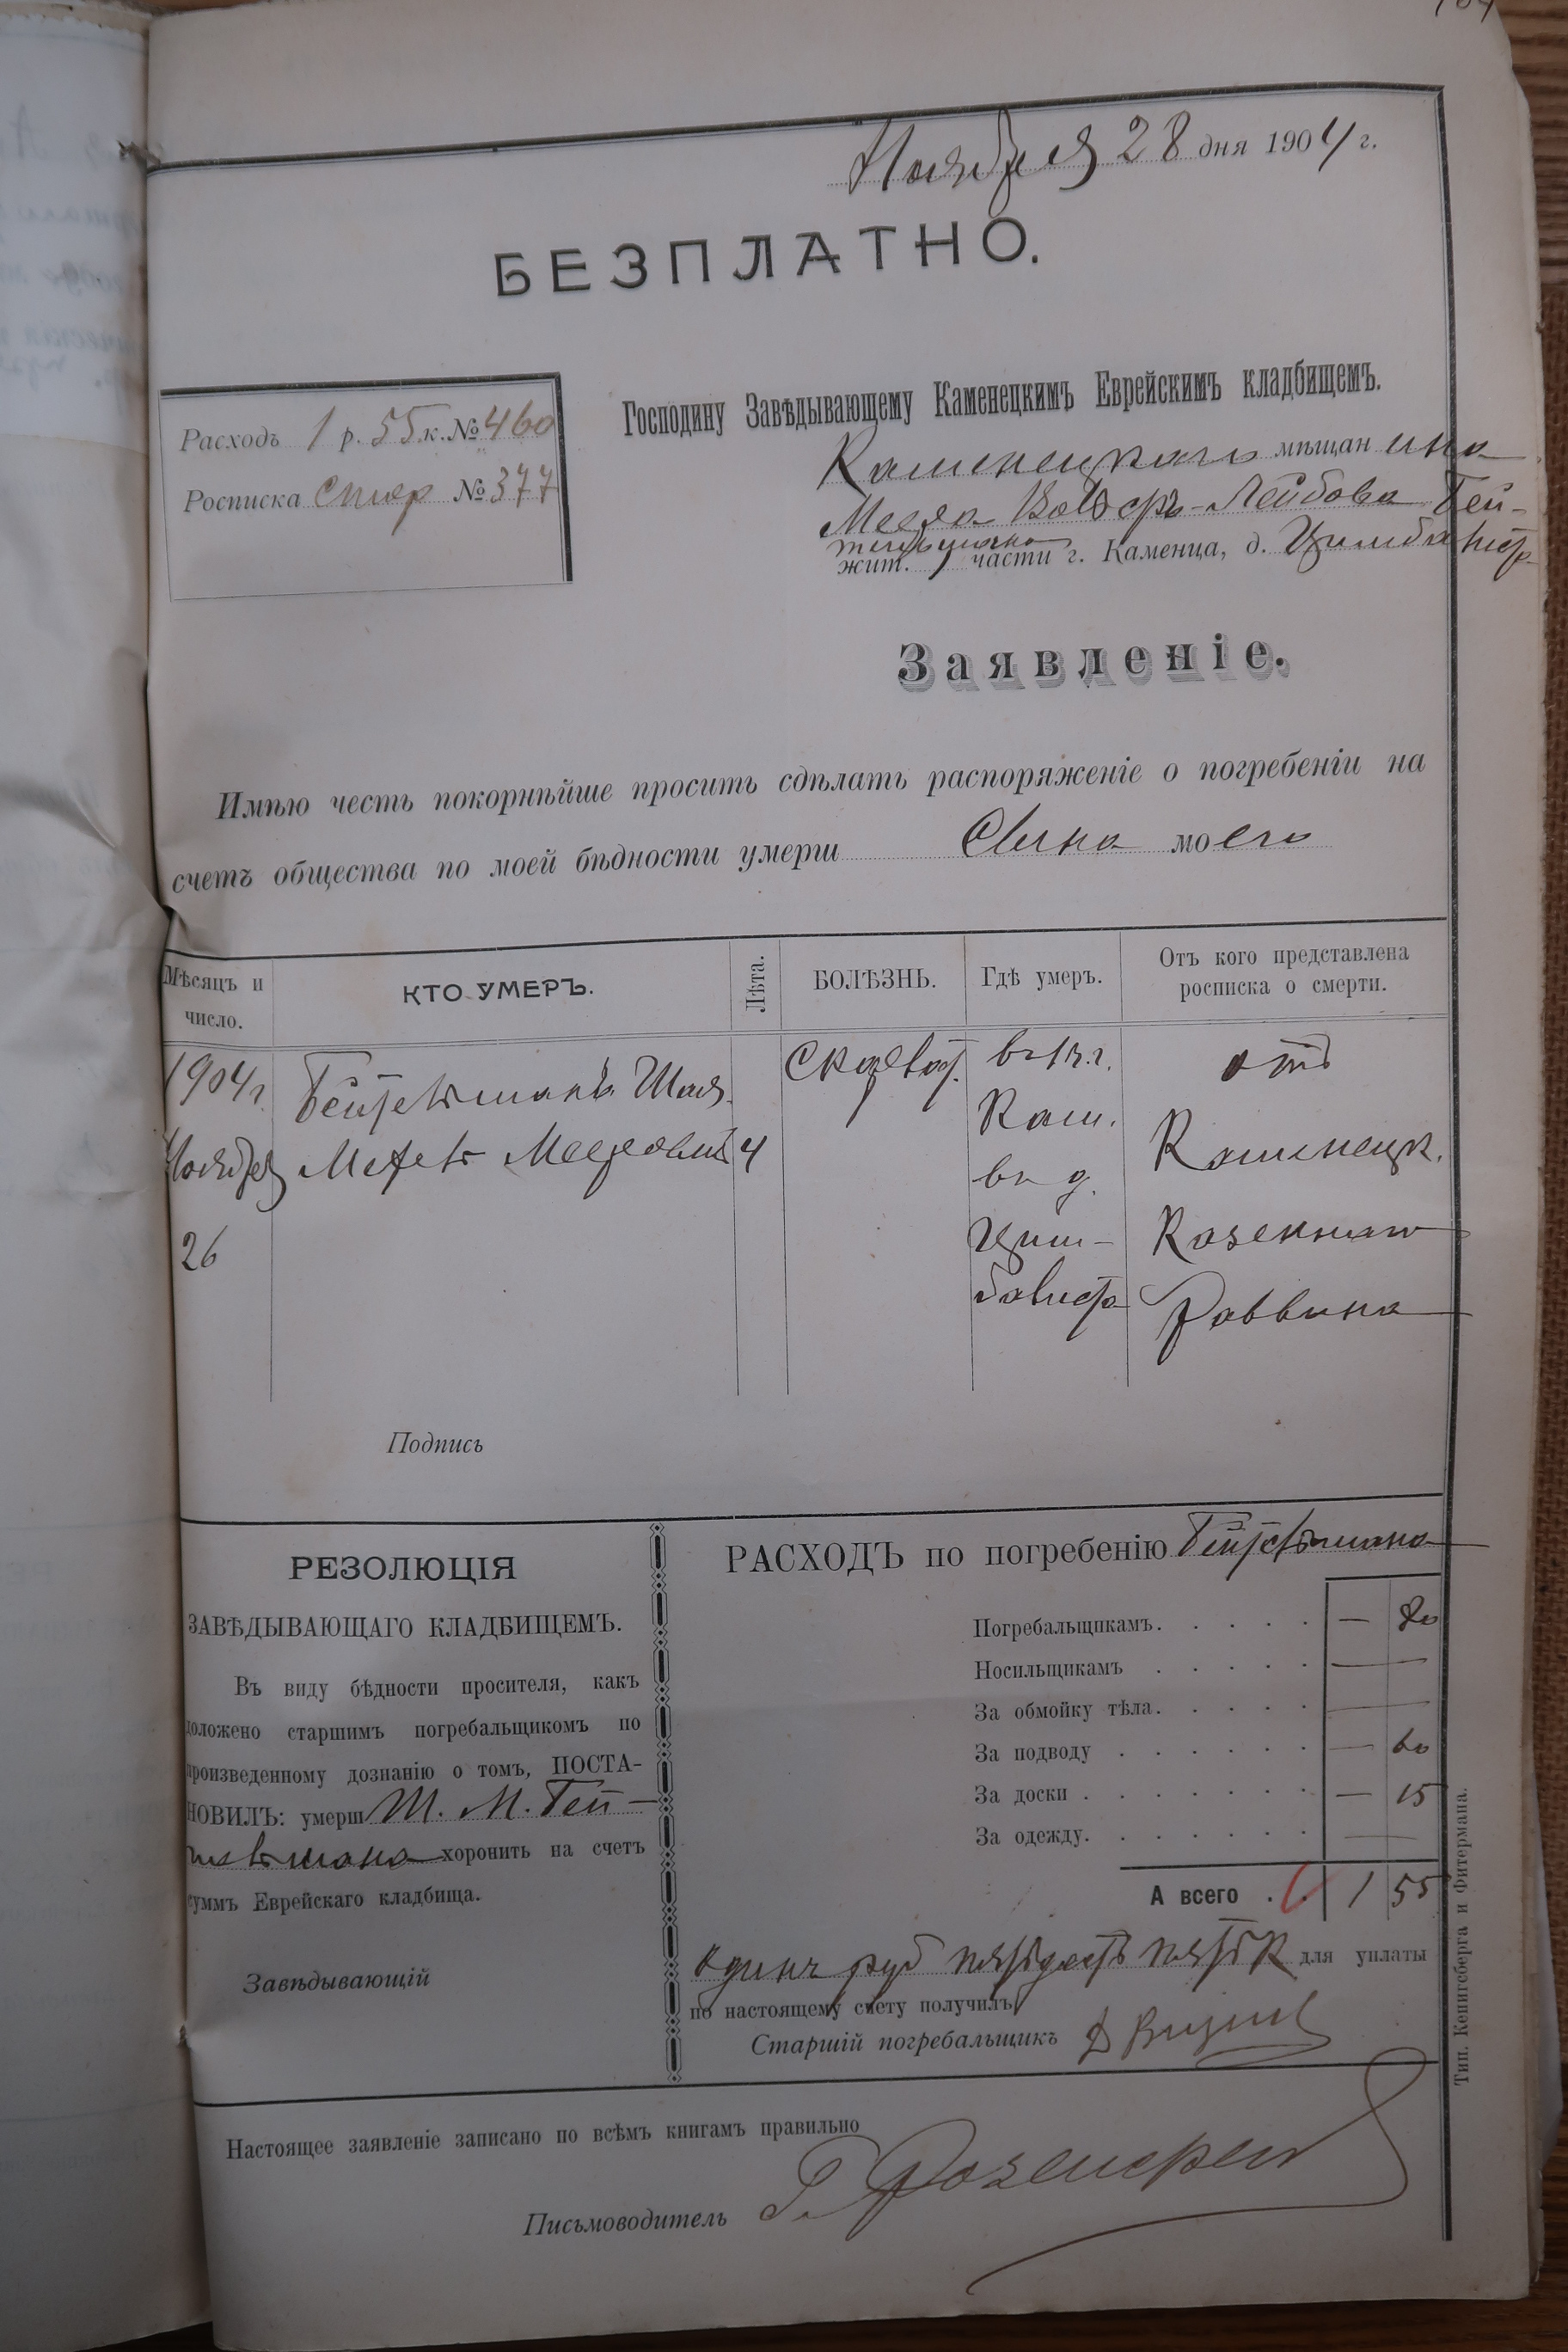 Ноября 28 дня 1904 г.
БЕЗПЛАТНО.
Расходъ 1 р. 55 к. № 460
Росписка смер № 377
Господину Завѣдывающему Каменецкимъ Еврейскимъ кладбищемъ.
Каменецкаго мѣщанина
Меера Лейбова Гей-
жит. части г. Каменца, д.
Заявленіе.
Имѣю честь покорнѣйше просить сдѣлать распоряженіе о погребеніи на
счетъ общества по моей бѣдности умерш Сына моего
Мѣсяцъ и число.
КТО УМЕРЪ.
Лѣта.
БОЛѢЗНЬ.
Гдѣ умеръ.
Отъ кого представлена росписка о смерти.
1904 г. скарлат. въ г. отъ
Кам. Каменецк.
Ноября Мееровичъ 4 въ д.
26 Цим- Казеннаго
Раввина
Подпись
РЕЗОЛЮЦІЯ
ЗАВѢДЫВАЮЩАГО КЛАДБИЩЕМЪ.
Въ виду бѣдности просителя, какъ
доложено старшимъ погребальщикомъ по
произведенному дознанію о томъ, ПОСТА-
НОВИЛЪ: умерш Ш. М. Гей-
хоронить на счетъ
суммъ Еврейскаго кладбища.
Завѣдывающій
РАСХОДЪ по погребенію
Погребальщикамъ. — 80
Носильщикамъ —
За обмойку тѣла. —
За подводу — 60
За доски — 15
За одежду. —
А всего 1 55
Одинъ руб пятьдесятъ пять к для уплаты
по настоящему счету получилъ
Старшій погребальщикъ
Настоящее заявленіе записано по всѣмъ книгамъ правильно
Письмоводитель
Тип. Кенигсберга и Фитермана.